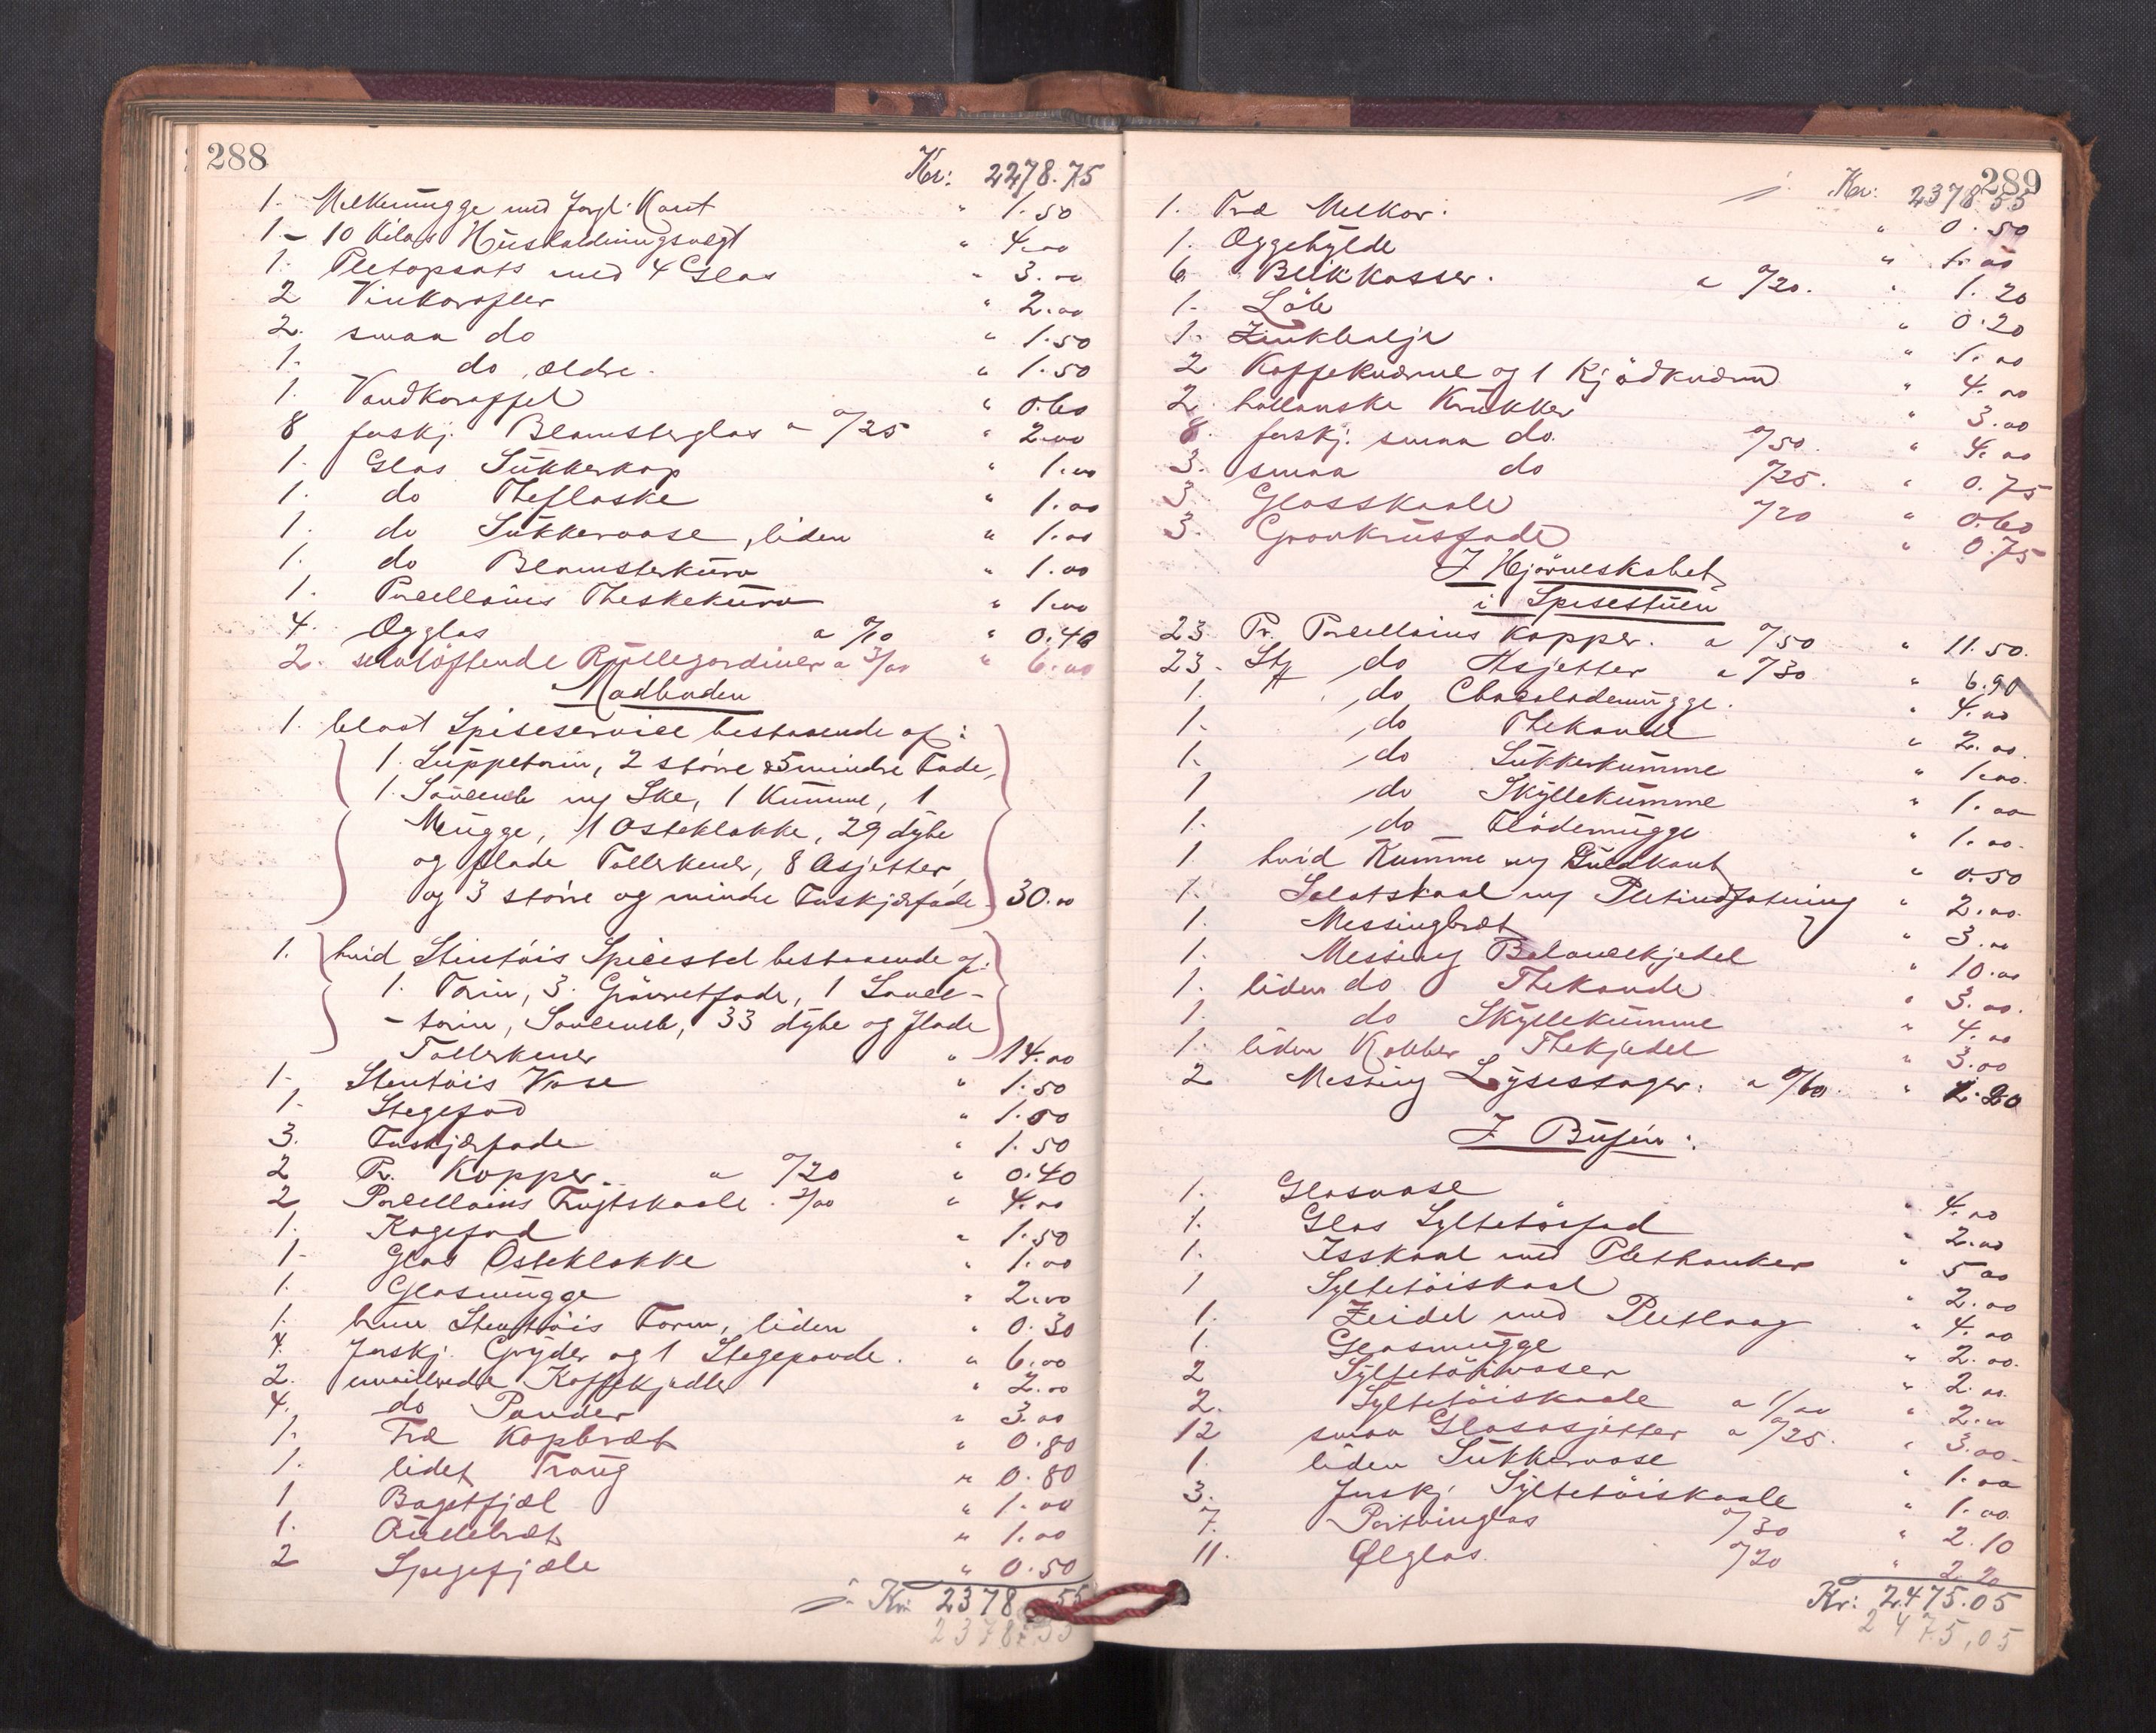 288
Kr: 2278.75
1. Melkemugge med forgl. Kant " 1.50
1 - 10 Kilos Husholdningsvegt " 4.00
1. Pletopsats med 4 Glas " 3.00
2 Vinkarafler " 2.00
2. smaa do " 1.50
1. do, ældre. " 1.50
1. Vandkaraffel " 0.60
8 forskj. Blomsterglas a %25 " 2.00
1. Glas Sukkerkop " 1.00
1. do Theflaske " 1.00
1. do Sukkervase, liden " 1.00
1. do Blomsterkurv " 1.00
1. Porcellains Theskekurv " 1.00
4. Ægglas a %10 " 0.40
2. selvløftende Rullegardiner a 3/00 " 6.00
Madboden
1. blaat Spiseservice bestaaende af:
1. Suppeterin, 2 større & 5 mindre Fade,
1. Sauceneb m/ Ske, 1 Kumme, 1
Mugge, 1 Osteklokke, 29 dybe
og flade Tallerkener, 8 Asjetter,
og 3 større og mindre Fuskjærfade. 30.00
1. hvid Stentøis Spisestel bestaaende af:
1. Terin, 3. Grønnetfade, 1 Sauce-
- terin, Sauceneb, 33 dybe og flade
Tallerkener " 14.00
1. Stentøis Vase " 1.50
1. Stegefad " 1.50
3. Fuskjærfade " 1.50
2 Pr. Kopper. a %20 " 0.40
2 Porcellains Frugtskaale. 2/00 " 4.00
1. Kagefad " 1.50
1. Glas Osteklokke " 1.00
1. Glasmugge " 2.00
1. brun Stentøis Form, liden " 0.30
4. forskj. Gryder og 1 Stegepande. " 6.00
2. emailerede Kaffekjedler " 2.00
4. do Pander " 3.00
1. Træ Kopbræt " 0.80
1. lidet Traug " 0.80
1 Bagstfjæl " 1.00
1. Rullebræt " 1.00
2 Spegefjæle " 0.50
Kr. 2378.55
2378.55
289
Kr: 2378.55
1. Træ Melkar. " 0.50
1. Æggehylde " 1.00
6 Blikkasser. a %20. " 1.20
1. Løb " 0.20
1. Zinkbalje " 1.00
2 Kaffekværne og 1 Kjødkværn " 4.00
2. hollanske Krukker " 3.00
8. forskj. smaa do. %50. " 4.00
3. smaa do %25. " 0.75
3. Glasskaale %20 " 0.60
3. Graakrusfade " 0.75
I Hjørneskabet
i Spisestuen
23. Pr. Porcellains Kopper. a %50 " 11.50.
23. Stk do Asjetter a %30 " 6.90
1. do Chocolademugge. " 4.00
1. do Thekande " 2.00.
1. do Sukkerkumme " 1.00.
1 do Skyllekumme " 1.00
1. do Flødemugge " 1.00.
1. hvid Kumme m/ Guldkant " 0.50
1. Salatskaal m/ Pletindfatning " 2.00.
1. Messingbræt " 3.00
1. Messing Balancekjedel " 10.00
1. liden do Thekande " 3.00.
1. do Skyllekumme " 4.00
1. liden Kobber Thekjedel " 3.00
2 Messing Lysestager. a %60. " 1.20
I Bufén:
1. Glasvase " 4.00
1. Glas Syltetøifad " 2.00
1. Isskaal med Plethanker " 5.00
1 Syltetøiskaal " 2.00
1. Zeidel med Pletlaag " 4.00
1. Glasmugge " 2.00.
2 Syltetøivaser " 2.00.
2. Syltetøiskaale a 1/00 " 2.00
12 smaa Glasasjetter a %25. " 3.00
1. liden Sukkervase " 1.00
3. forskj. Syltetøiskaale " 1.00.
7. Portvinglas %30 " 2.10
11. Ølglas. %20 " 2.20
Kr: 2475.05
2475,05